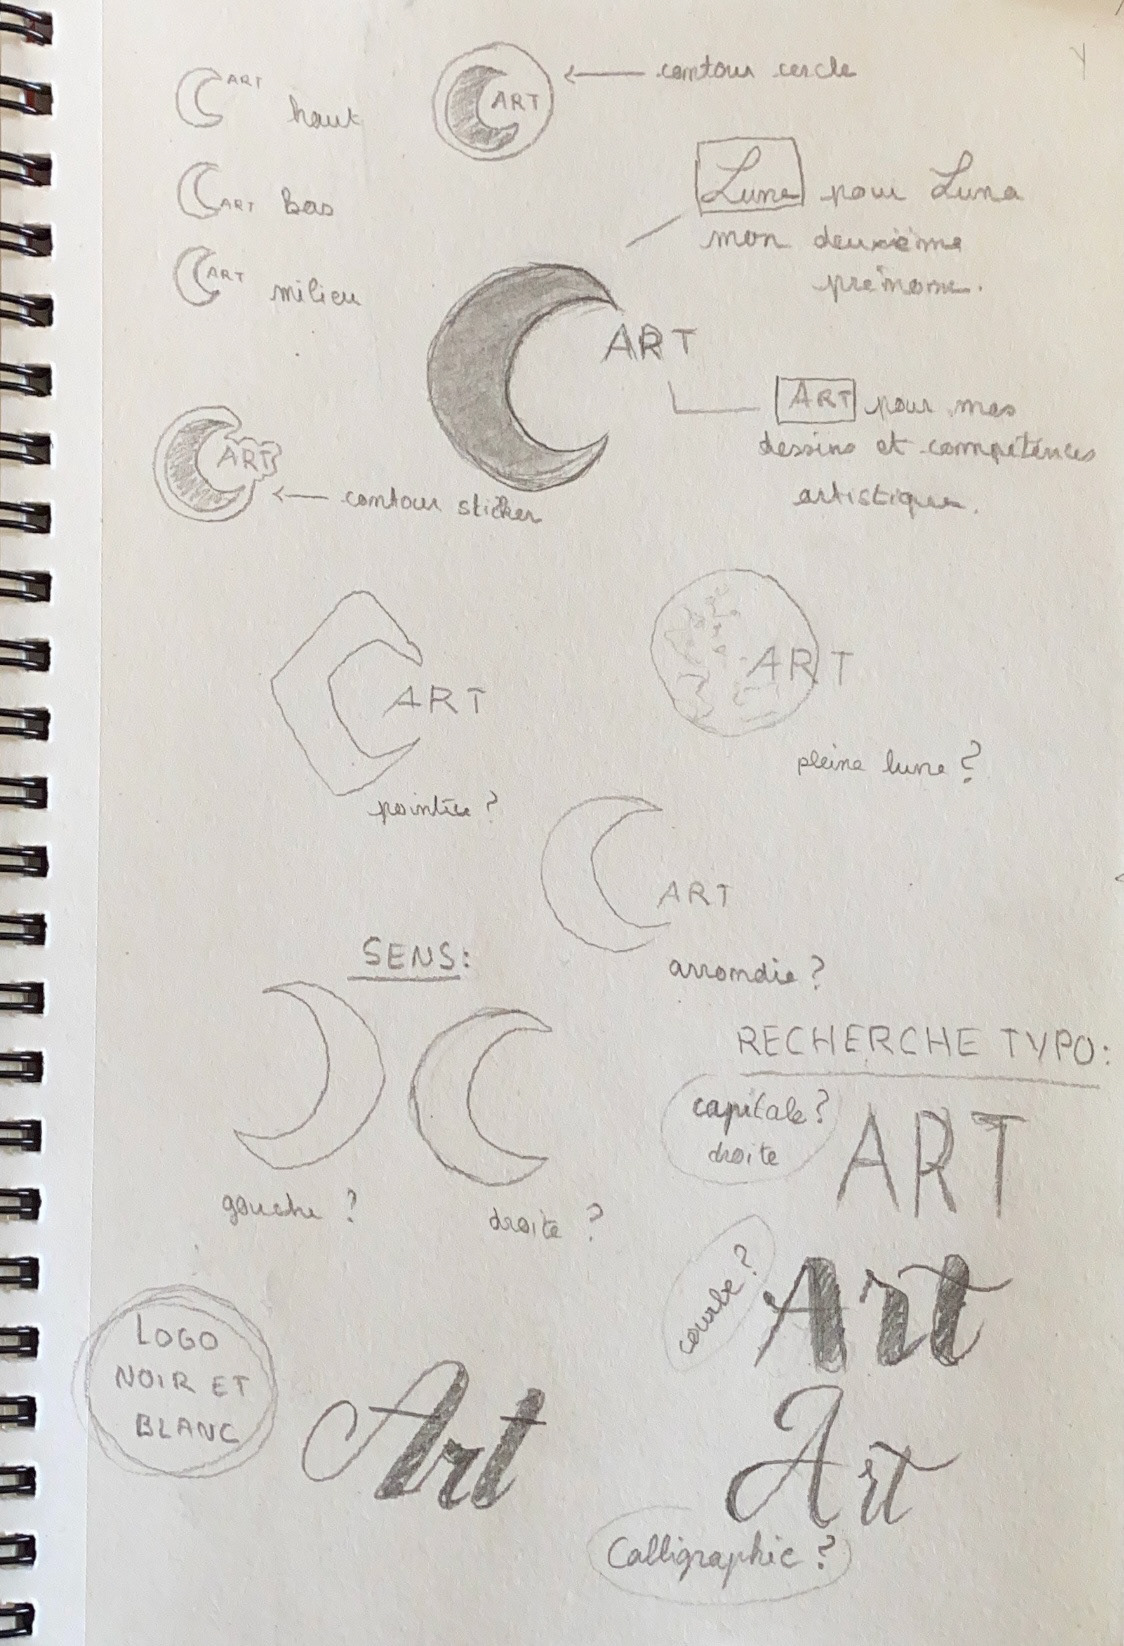 ART
haut
ART
contour cercle
ART Bas
ART
milieu
Lune pour Luna
mon deuxième
prénom.
ART
ART pour mes
dessins et compétences
artistiques.
ART
contour sticker
ART
pointue ?
ART
pleine lune ?
ART
arrondie ?
SENS:
gauche ?
droite ?
RECHERCHE TYPO:
capitale ?
droite
ART
courbe ?
Art
LOGO
NOIR ET
BLANC
Art
Art
Calligraphie ?